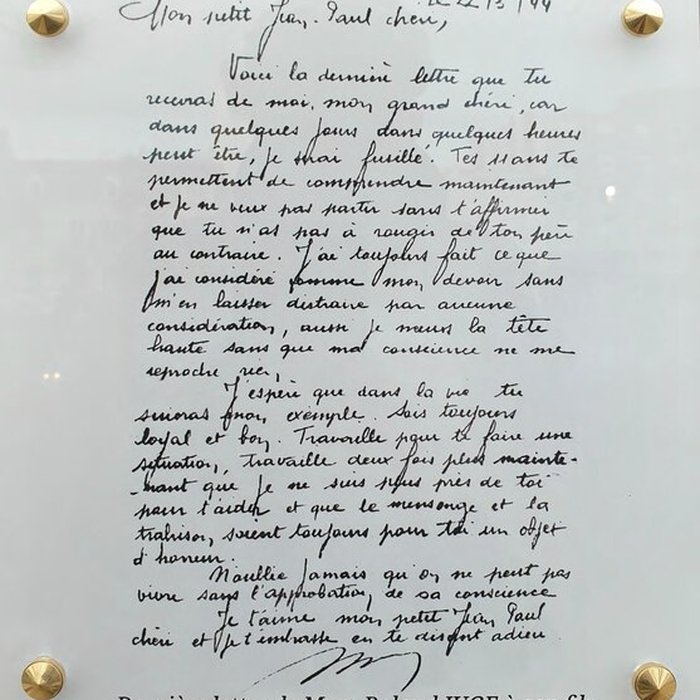 Mon petit Jean-Paul chéri, le 22/3/44
Voici la dernière lettre que tu
recevras de moi, mon grand chéri, car
dans quelques jours dans quelques heures
peut être, je serai fusillé. Tes 11 ans te
permettent de comprendre maintenant
et je ne veux pas partir sans t'affirmer
que tu n'as pas à rougir de ton père
au contraire. J'ai toujours fait ce que
j'ai considéré comme mon devoir sans
m'en laisser distraire par aucune
considération, aussi je meurs la tête
haute sans que ma conscience ne me
reproche rien.
J'espère que dans la vie tu
suivras mon exemple. Sois toujours
loyal et bon. Travaille pour te faire une
situation, travaille deux fois plus mainte-
-nant que je ne suis plus près de toi
pour t'aider et que le mensonge et la
trahison, soient toujours pour toi un objet
d'horreur.
N'oublie jamais qu'on ne peut pas
vivre sans l'approbation de sa conscience
Je t'aime mon petit Jean Paul
chéri et je t'embrasse en te disant adieu